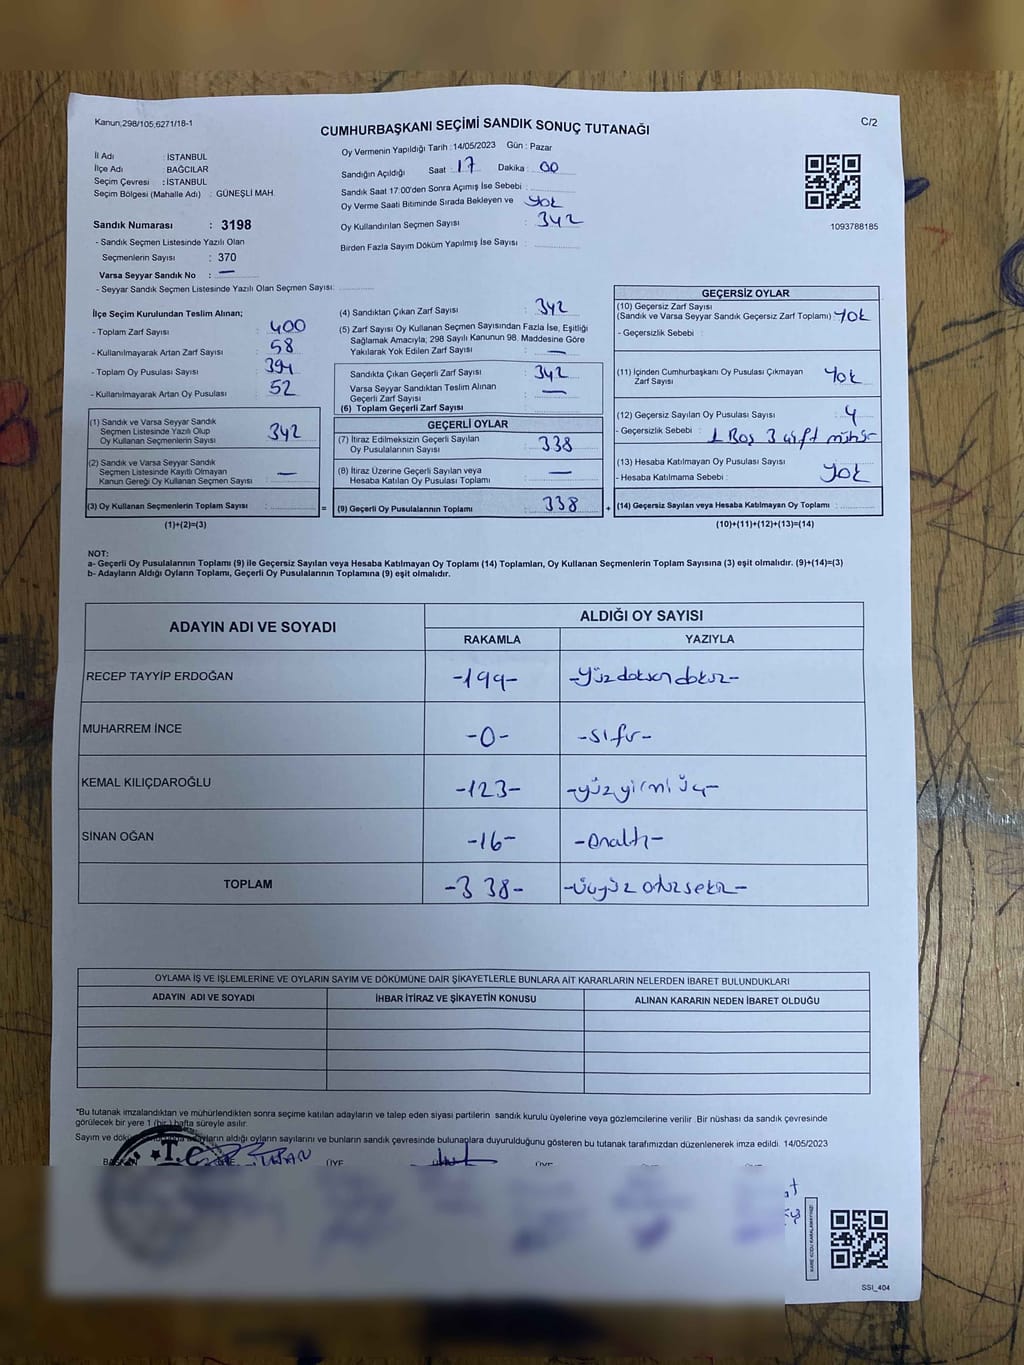 Kanun;298/105;6271/18-1
C/2
CUMHURBAŞKANI SEÇİMİ SANDIK SONUÇ TUTANAĞI
İl Adı : İSTANBUL
İlçe Adı : BAĞCILAR
Seçim Çevresi : İSTANBUL
Seçim Bölgesi (Mahalle Adı) : GÜNEŞLİ MAH.
Sandık Numarası : 3198
- Sandık Seçmen Listesinde Yazılı Olan
Seçmenlerin Sayısı : 370
Varsa Seyyar Sandık No : —
- Seyyar Sandık Seçmen Listesinde Yazılı Olan Seçmen Sayısı:
Oy Vermenin Yapıldığı Tarih : 14/05/2023 Gün : Pazar
Sandığın Açıldığı Saat : 17 Dakika : 00
Sandık Saat 17:00'den Sonra Açımış İse Sebebi :
Oy Verme Saati Bitiminde Sırada Bekleyen ve yok
Oy Kullandırılan Seçmen Sayısı : 342
Birden Fazla Sayım Döküm Yapılmış İse Sayısı :
1093788185
İlçe Seçim Kurulundan Teslim Alınan;
- Toplam Zarf Sayısı : 400
- Kullanılmayarak Artan Zarf Sayısı : 58
- Toplam Oy Pusulası Sayısı : 394
- Kullanılmayarak Artan Oy Pusulası : 52
(1) Sandık ve Varsa Seyyar Sandık
Seçmen Listesinde Yazılı Olup
Oy Kullanan Seçmenlerin Sayısı : 342
(2) Sandık ve Varsa Seyyar Sandık
Seçmen Listesinde Kayıtlı Olmayan
Kanun Gereği Oy Kullanan Seçmen Sayısı : —
(3) Oy Kullanan Seçmenlerin Toplam Sayısı : =
(1)+(2)=(3)
(4) Sandıktan Çıkan Zarf Sayısı : 342
(5) Zarf Sayısı Oy Kullanan Seçmen Sayısından Fazla İse, Eşitliği
Sağlamak Amacıyla; 298 Sayılı Kanunun 98. Maddesine Göre
Yakılarak Yok Edilen Zarf Sayısı : —
Sandıkta Çıkan Geçerli Zarf Sayısı : 342
Varsa Seyyar Sandıktan Teslim Alınan
Geçerli Zarf Sayısı : —
(6) Toplam Geçerli Zarf Sayısı :
GEÇERLİ OYLAR
(7) İtiraz Edilmeksizin Geçerli Sayılan
Oy Pusulalarının Sayısı : 338
(8) İtiraz Üzerine Geçerli Sayılan veya
Hesaba Katılan Oy Pusulası Toplamı : —
(9) Geçerli Oy Pusulalarının Toplamı : 338 +
GEÇERSİZ OYLAR
(10) Geçersiz Zarf Sayısı
(Sandık ve Varsa Seyyar Sandık Geçersiz Zarf Toplamı) yok
- Geçersizlik Sebebi :
(11) İçinden Cumhurbaşkanı Oy Pusulası Çıkmayan
Zarf Sayısı : yok
(12) Geçersiz Sayılan Oy Pusulası Sayısı : 4
- Geçersizlik Sebebi : 1 Boş 3 çift mühür
(13) Hesaba Katılmayan Oy Pusulası Sayısı
- Hesaba Katılmama Sebebi : yok
(14) Geçersiz Sayılan veya Hesaba Katılmayan Oy Toplamı :
(10)+(11)+(12)+(13)=(14)
NOT:
a- Geçerli Oy Pusulalarının Toplamı (9) ile Geçersiz Sayılan veya Hesaba Katılmayan Oy Toplamı (14) Toplamları, Oy Kullanan Seçmenlerin Toplam Sayısına (3) eşit olmalıdır. (9)+(14)=(3)
b- Adayların Aldığı Oyların Toplamı, Geçerli Oy Pusulalarının Toplamına (9) eşit olmalıdır.
ADAYIN ADI VE SOYADI
ALDIĞI OY SAYISI
RAKAMLA YAZIYLA
RECEP TAYYİP ERDOĞAN -199- -yüzdoksandokuz-
MUHARREM İNCE -0- -sıfır-
KEMAL KILIÇDAROĞLU -123- -yüzyirmi üç-
SİNAN OĞAN -16- -onaltı-
TOPLAM -338- -üçyüz otuzsekiz-
OYLAMA İŞ VE İŞLEMLERİNE VE OYLARIN SAYIM VE DÖKÜMÜNE DAİR ŞİKAYETLERLE BUNLARA AİT KARARLARIN NELERDEN İBARET BULUNDUKLARI
ADAYIN ADI VE SOYADI İHBAR İTİRAZ VE ŞİKAYETİN KONUSU ALINAN KARARIN NEDEN İBARET OLDUĞU
*Bu tutanak imzalandıktan ve mühürlendikten sonra seçime katılan adayların ve talep eden siyasi partilerin sandık kurulu üyelerine veya gözlemcilerine verilir. Bir nüshası da sandık çevresinde
görülecek bir yere 1 (bir) hafta süreyle asılır.
Sayım ve adayların aldığı oyların sayılarını ve bunların sandık çevresinde bulunanlara duyurulduğunu gösteren bu tutanak tarafımızdan düzenlenerek imza edildi. 14/05/2023
T.C.
ÜYE ÜYE
KARE KODU KARALAMAYINIZ!
SSI_404